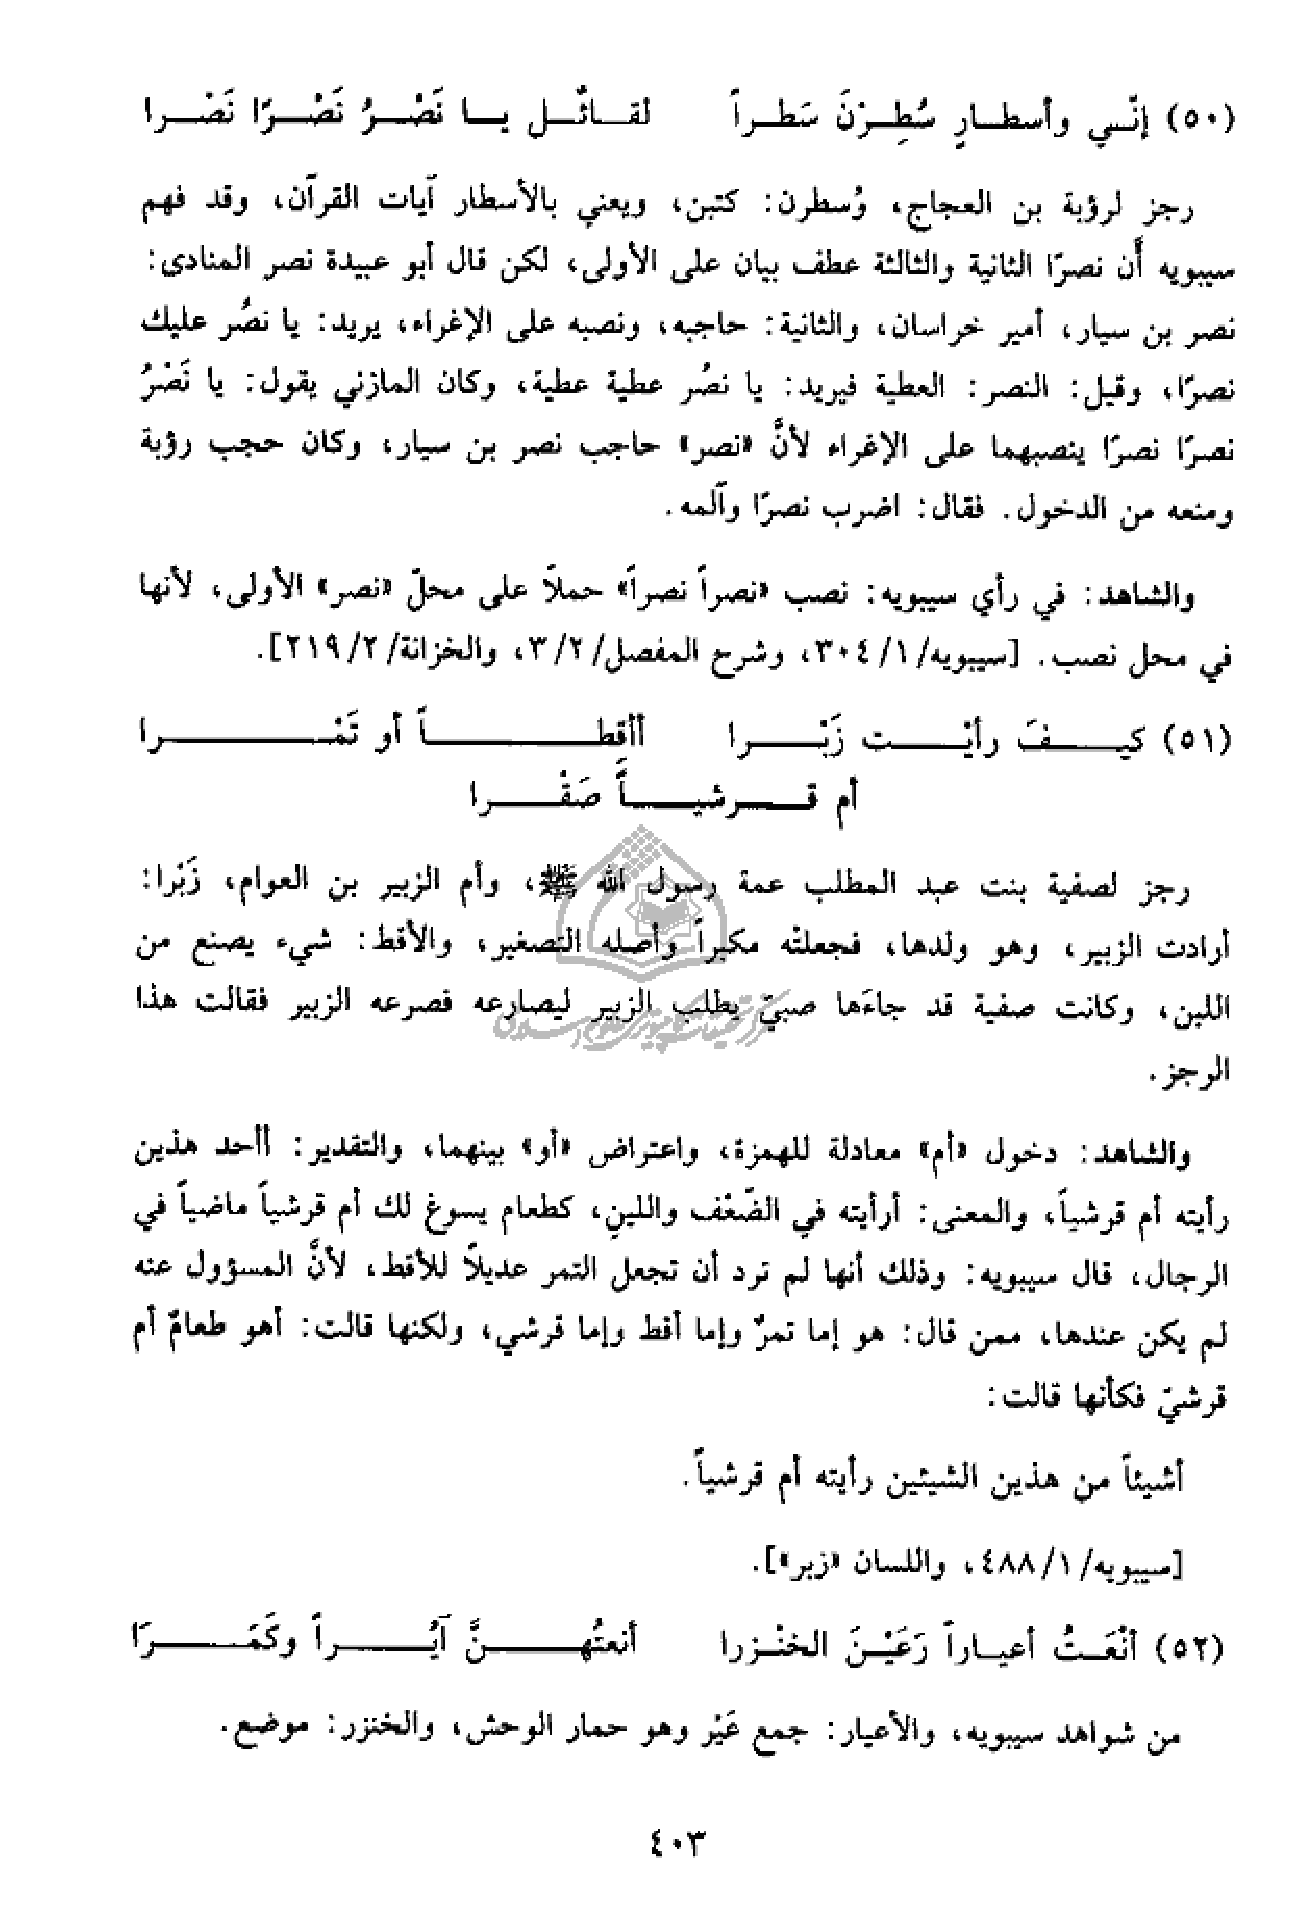 (٥٠) إنّي وأسطارٍ سُطِرْنَ سَطراً لقائل يا نَصْرُ نَصْرًا نَصْرا
رجز لرؤبة بن العجاج، وُسطرن: كتبن، ويعني بالأسطار آيات القرآن، وقد فهم
سيبويه أَن نصرًا الثانية والثالثة عطف بيان على الأولى، لكن قال أبو عبيدة نصر المنادى:
نصر بن سيار، أمير خراسان، والثانية: حاجبه، ونصبه على الإغراء، يريد: يا نصُر عليك
نصرًا، وقيل: النصر: العطية فيريد: يا نصُر عطية عطية، وكان المازني يقول: يا نَصْرُ
نصرًا نصرًا ينصبهما على الإغراء لأنَّ «نصر» حاجب نصر بن سيار، وكان حجب رؤبة
ومنعه من الدخول. فقال: اضرب نصرًا وآلمه.
والشاهد: في رأي سيبويه: نصب «نصراً نصراً» حملاً على محلّ «نصر» الأولى، لأنها
في محل نصب. [سيبويه/١/٣٠٤، وشرح المفصل/٢/٣، والخزانة/٢/٢١٩].
(٥١) كيفَ رأيْت زَبْرا أأقطاً أو تَمْرا
أم قرشياًَّ صَقْرا
رجز لصفية بنت عبد المطلب عمة رسول الله ﷺ، وأم الزبير بن العوام، زَبْرا:
أرادت الزبير، وهو ولدها، فجعلتْه مكبراً وأصله التصغير، والأقط: شيء يصنع من
اللبن، وكانت صفية قد جاءَها صبيّ يطلب الزبير ليصارعه فصرعه الزبير فقالت هذا
الرجز.
والشاهد: دخول «أم» معادلة للهمزة، واعتراض «أو» بينهما، والتقدير: أأحد هذين
رأيته أم قرشياً، والمعنى: أرأيته في الضّعْف واللينِ، كطعام يسوغ لك أم قرشياً ماضياً في
الرجال، قال سيبويه: وذلك أنها لم ترد أن تجعل التمر عديلاً للأقط، لأنَّ المسؤول عنه
لم يكن عندها، ممن قال: هو إما تمرٌ وإما أقط وإما قرشي، ولكنها قالت: أهو طعامٌ أم
قرشيّ فكأنها قالت:
أشيئاً من هذين الشيئين رأيته أم قرشياً.
[سيبويه/١/٤٨٨، واللسان «زبر»].
(٥٢) أنْعَتُ أعياراً رَعَيْنَ الخنْزرا أنعتُهنَّ آيُراً وكَمَرَا
من شواهد سيبويه، والأعيار: جمع عَيْر وهو حمار الوحش، والخنزر: موضع.
٤٠٣